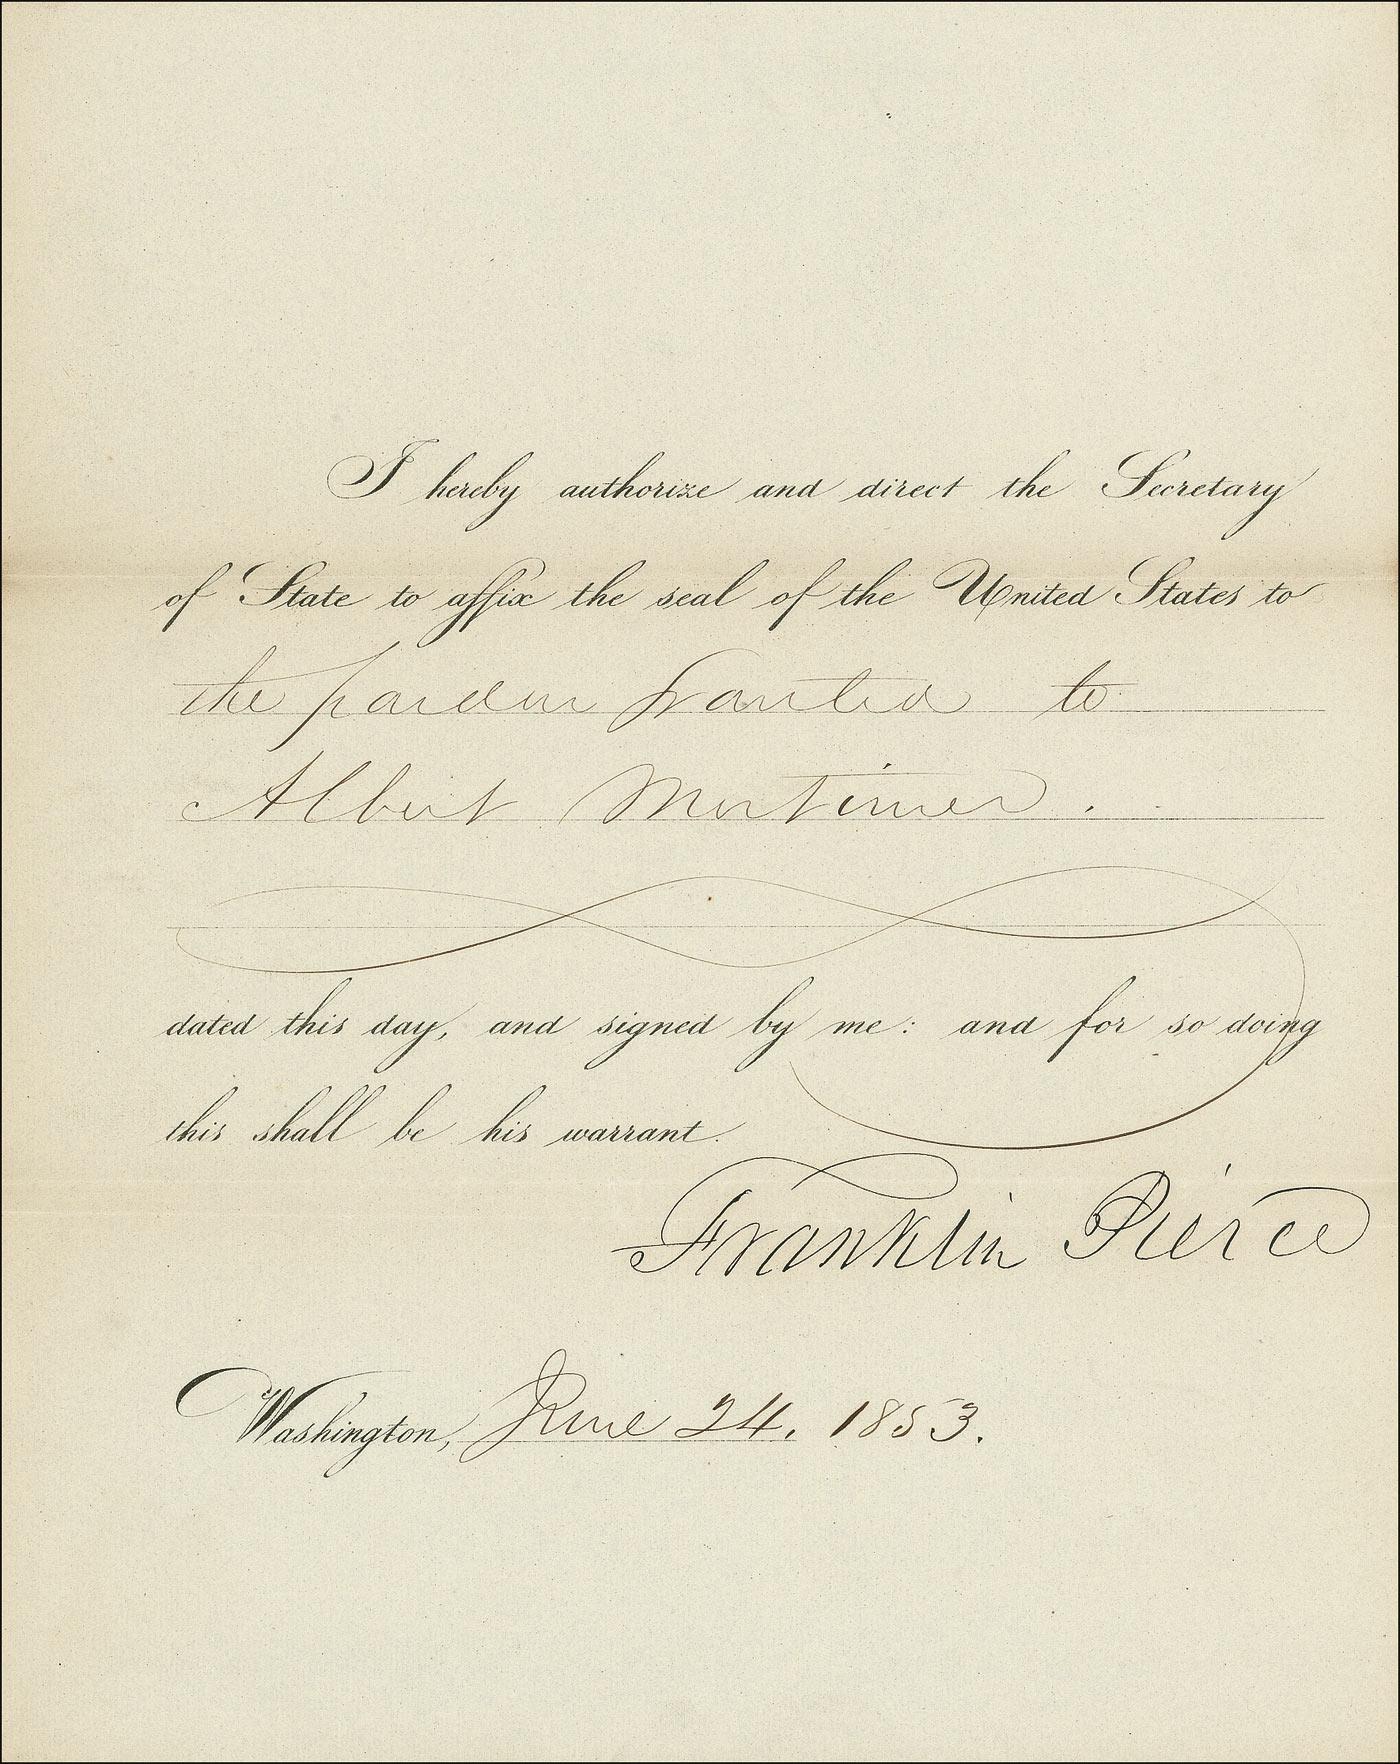 I hereby authorize and direct the Secretary
of State to affix the seal of the United States to
the pardon granted to
Albert Mortimer.
dated this day, and signed by me: and for so doing
this shall be his warrant.
Franklin Pierce
Washington, June 24. 1853.